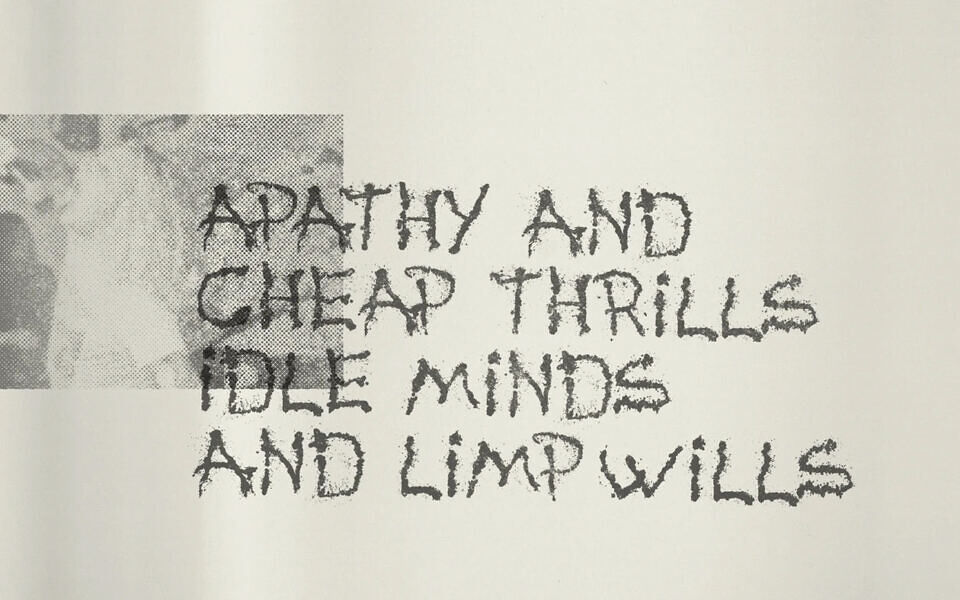 APATHY AND
CHEAP THRiLLS
iDLE MiNDS
AND LiMP WiLLS